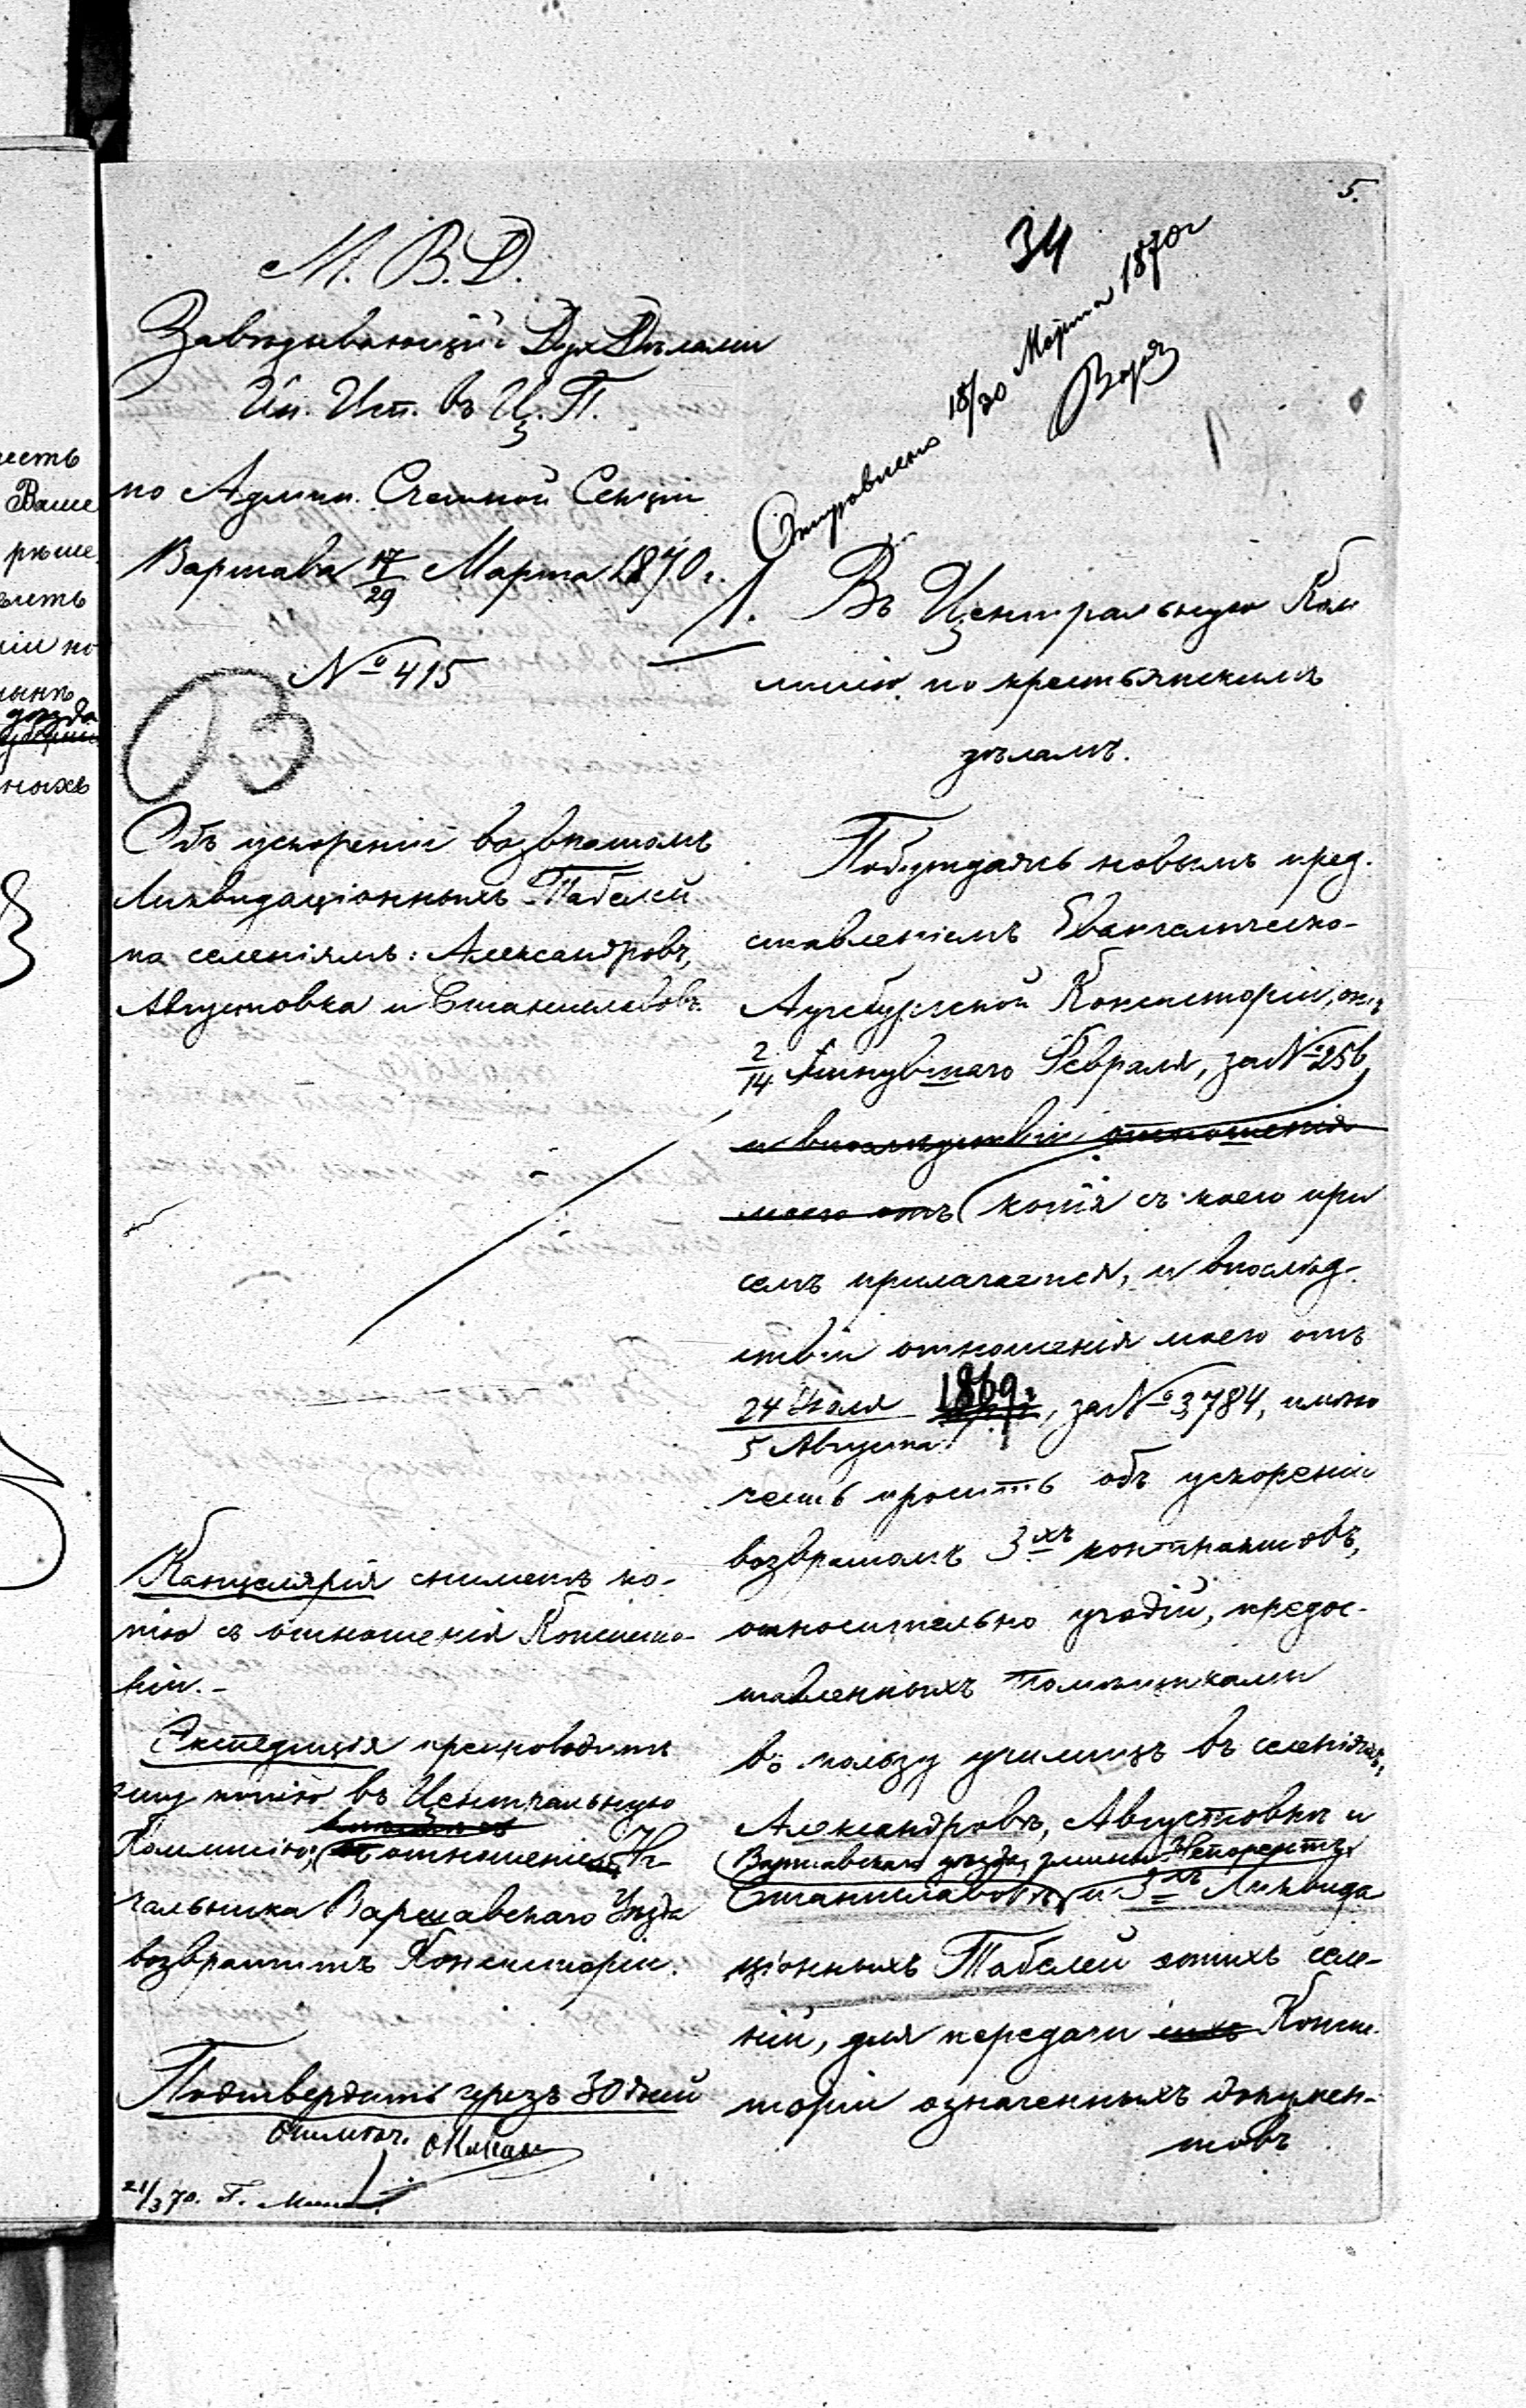 5.
34
М. В. Д.
Завѣдывающій Дух Дѣлами
Ин. Исп. въ Ц. П.
по Админ. Счетной Секціи
Варшава 17/29 Марта 1870 г.
№ 415
В
Отправлено 18/30 Марта 1870 г
Объ ускореніи возвратомъ
Ликвидаціонныхъ Табелей
на селеніямъ: Александровъ,
Августовка и Станиславовъ.
Канцелярія сниметъ ко-
пію съ отношенія Консисто-
ріи.-
Экспедиція препроводитъ
эту копію въ Центральную
Коммисію, отношеніе На
чальника Варшавскаго Уѣзда
возвратитъ Консисторіи.
Подтвердить чрезъ 30 дней
21/3 70.
1. Въ Центральную Ком
мисію по крестьянскимъ
дѣламъ.
Побуждаясь новымъ пред-
ставленіемъ Евангелическо-
Аугсбургской Консисторіи, отъ
2/14 минувшаго Февраля, за № 256,
и впослѣдствіи отношенія
моего отъ (копія съ коего при
семъ прилагается, и впослѣд-
ствіи отношенія моего отъ
24 Іюля 1869 г., за № 3784, имѣю
5 Августа
честь просить объ ускореніи
возвратомъ 3хъ контрактовъ,
относительно угодій, предос-
тавленныхъ помѣщиками
въ пользу училищъ въ селеніяхъ,
Александровъ, Августовка и
Варшавскаго уѣзда, гмины Непорентъ
Станиславовъ, и 3хъ Ликвида
ціонныхъ Табелей этихъ селе-
ній, для передачи ихъ Консис-
торіи означенныхъ докумен-
товъ